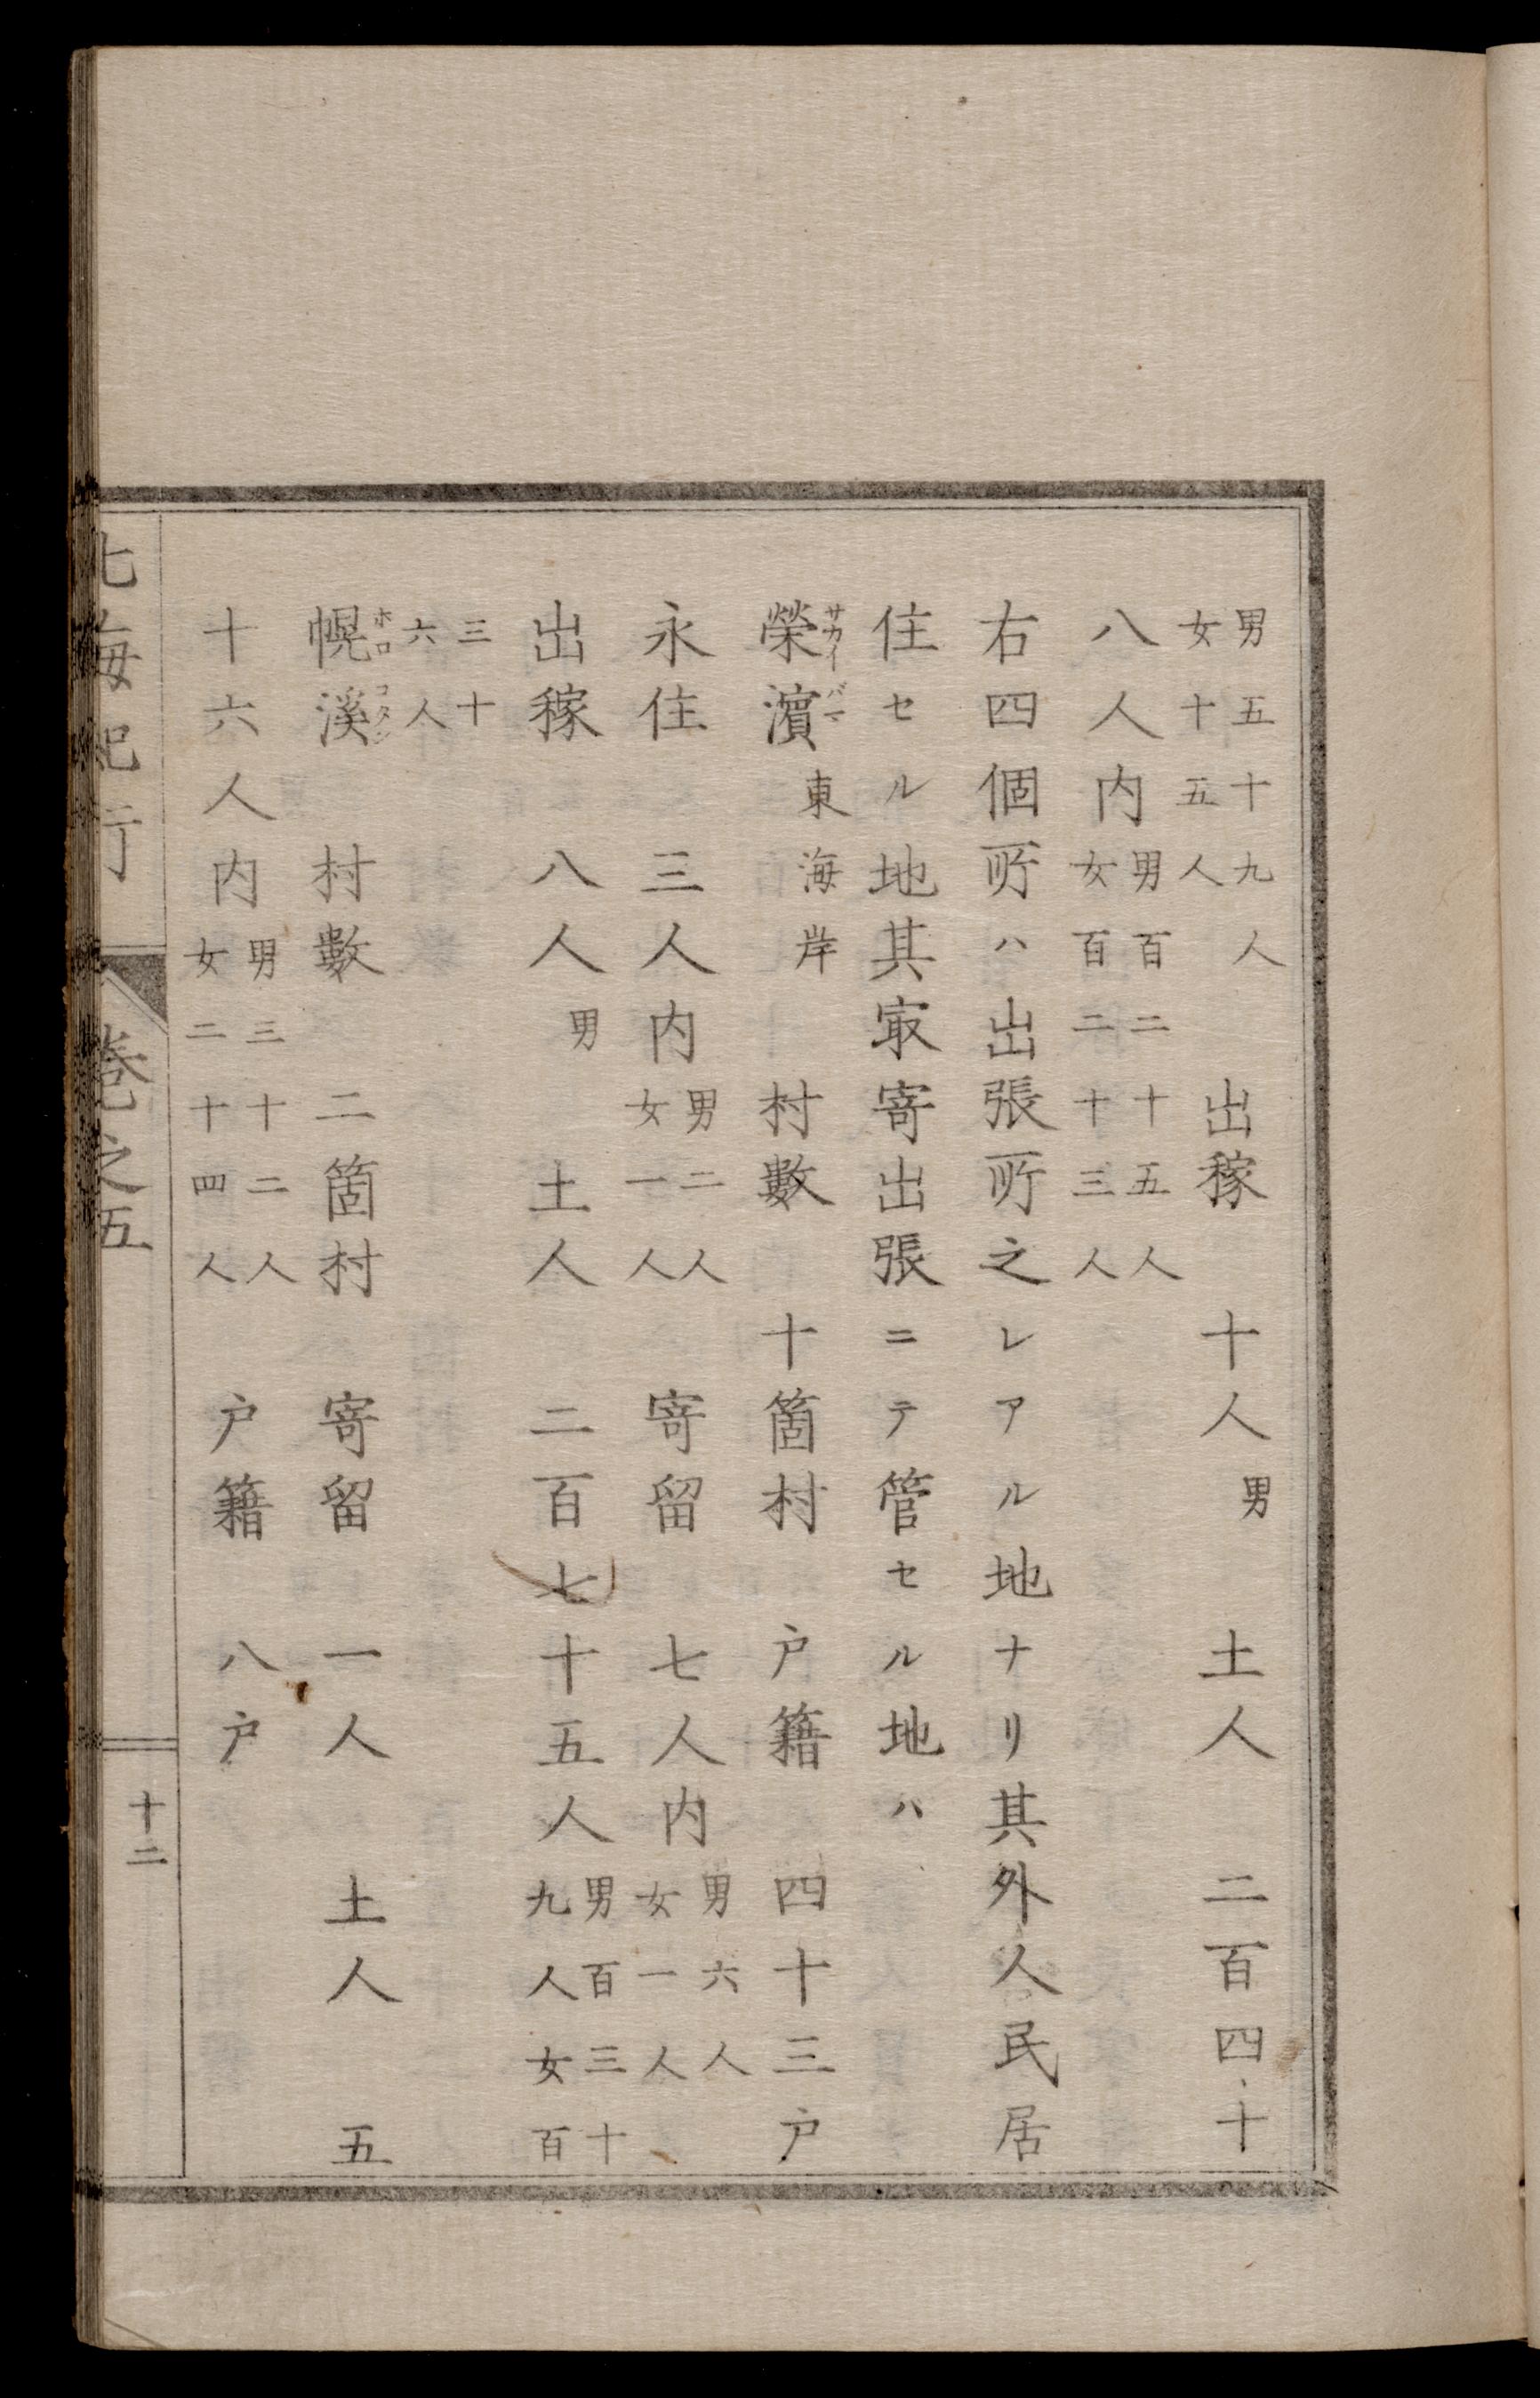 男五十九人　出稼　十人男　土人　二百四十
女十五人
八人内男百二十五人
女百二十三人
右四個所ハ出張所之レアル地ナリ其外人民居
住セル地其㝡寄出張ニテ管セル地ハ
榮濵東海岸　村數　十箇村　戸籍　四十三戸
サカイバマ
永住　三人内男二人　寄留　七人内男六人
女一人　女一人
出稼　八人男　土人　二百七十五人男百三十
九人女百
三十
六人
幌溪　村數　二箇村　寄留　一人　土人　五
ホロコタン
十六人内男三十二人　戸籍　八戸
女二十四人
北海紀行　卷之五　十二